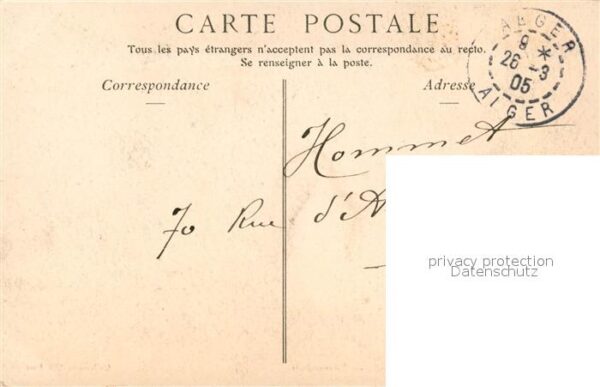 CARTE POSTALE
Tous les pays étrangers n'acceptent pas la correspondance au recto.
Se renseigner à la poste.
Correspondance
Adresse
ALGER
9 *
26 -3
05
ALGER
Hommet
70 Rue d'A
privacy protection
Datenschutz